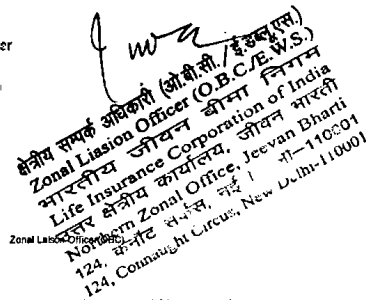 er
क्षेत्रीय सम्पर्क अधिकारी (ओ.बी.सी./ई.डब्लू.एस.)
Zonal Liasion Officer (O.B.C./E.W.S.)
भारतीय जीवन बीमा निगम
Life Insurance Corporation of India
उत्तर क्षेत्रीय कार्यालय, जीवन भारती
Northern Zonal Office, Jeevan Bharti
124, कनॉट सर्कस, नई
124, Connaught Circus, New Delhi-110001
Zonal Laison Officer(OBC)